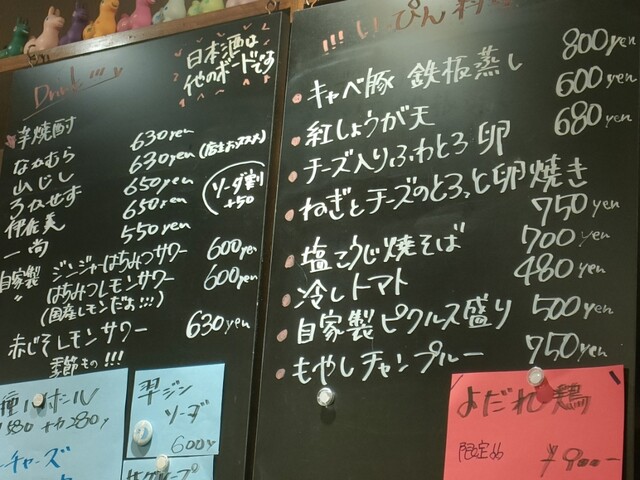 Drink
日本酒は
他のボードです
芋焼酎
なかむら 630yen
山ねこ 630yen (店主おススメ)
ろくよせず 650yen
伊佐美 650yen
一尚 550yen
ソーダ割
+50
自家製 ジンジャーはちみつサワー 600yen
〃 はちみつレモンサワー 600yen
(国産レモンだよ!!!)
赤じそレモンサワー 630yen
季節もの!!!
翠ジン
ソーダ
600y
!!! いっぴん料理
・キャベ豚 鉄板蒸し 800yen
・紅しょうが天 600yen
・チーズ入りふわとろ卵 680yen
・ねぎとチーズのとろっと卵焼き
750yen
・塩こうじ焼そば 700yen
・冷しトマト 480yen
・自家製ピクルス盛り 500yen
・もやしチャンプルー 750yen
よだれ鶏
限定
¥900-